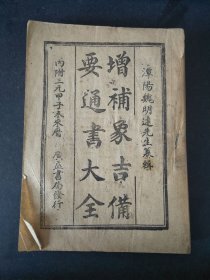 潭陽魏明遠先生纂輯
增補象吉備
要通書大全
內附三元甲子未來曆　廣益書局發行